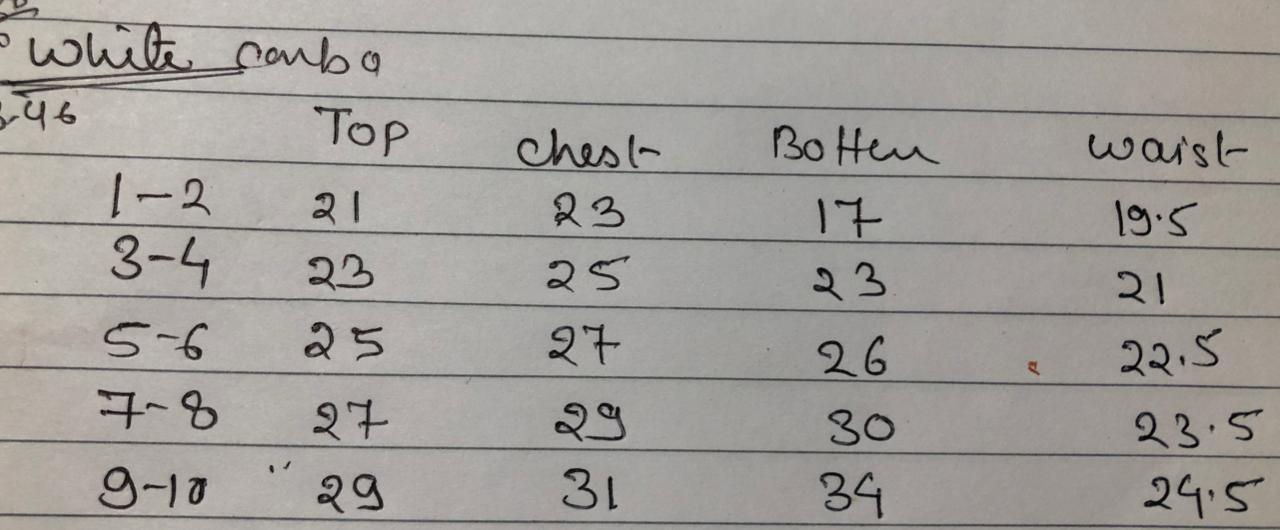 White combo
-46 Top chest Bottem waist
1-2 21 23 17 19.5
3-4 23 25 23 21
5-6 25 27 26 22.5
7-8 27 29 30 23.5
9-10 29 31 34 24.5